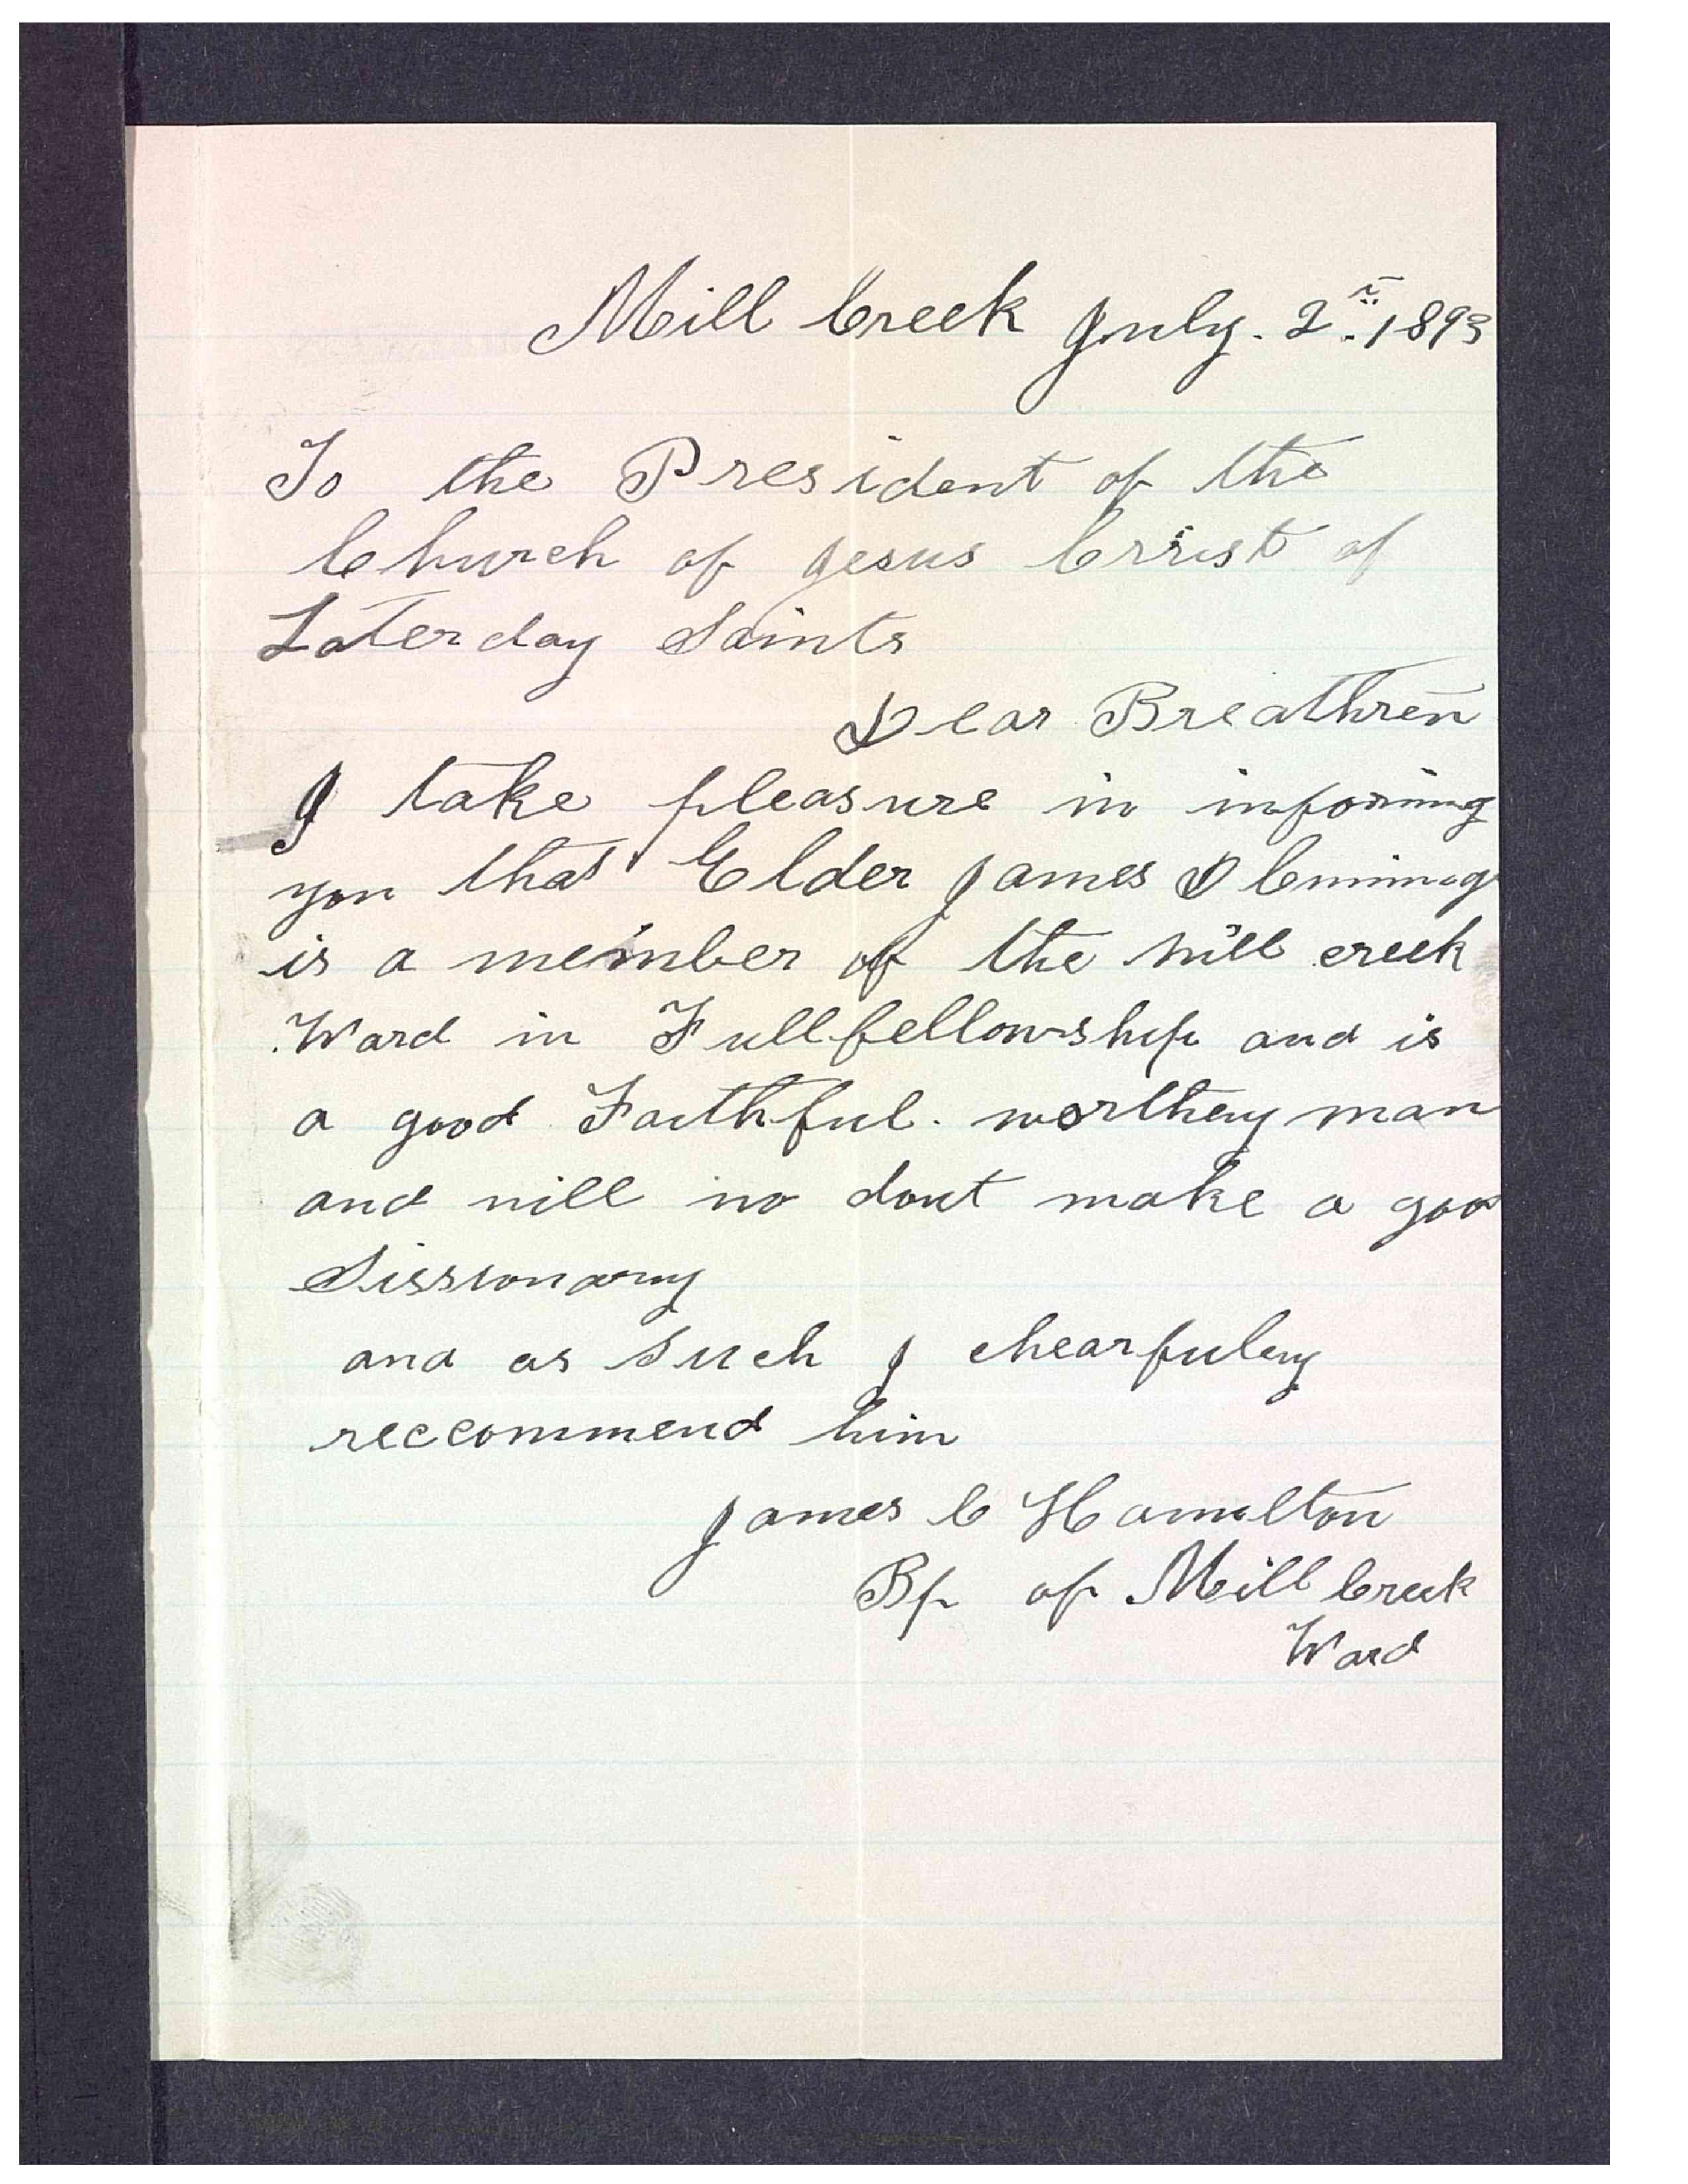 Mill Creek July. 2 1893
To the President of the
Church of Jesus Crist of
Laterday Saints
Dear Breathren
I take pleasure in informing
you that Elder James D Cumming
is a member of the mill creek
Ward in Full fellowship and is
a good Faithful. worthey man
and will no dout make a goo
Missionary
and as such I chearfuley
reccommend him
James C Hamilton
Bp of Mill Creek
Ward